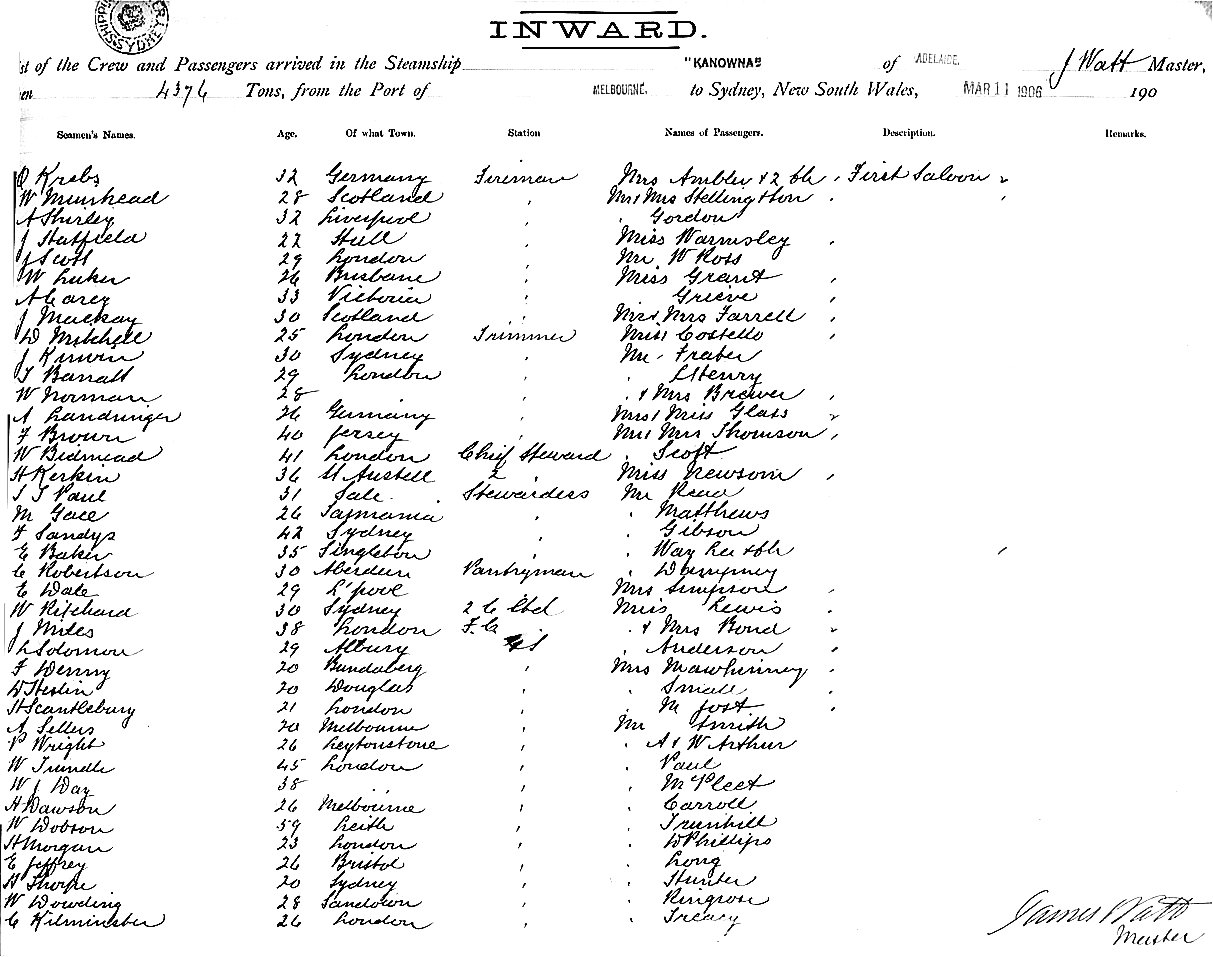 INWARD.
st of the Crew and Passengers arrived in the Steamship "KANOWNA" of ADELAIDE. J Watt Master,
en 4376 Tons, from the Port of MELBOURNE. to Sydney, New South Wales, MAR 11 1906 190
Seamen's Names. Age. Of what Town. Station Names of Passengers. Description. Remarks.
O Krebs 32 Germany Fireman Mrs Ambler & 2 ch First Saloon
W Muirhead 28 Scotland Mr & Mrs Stellingthon
A Shirley 32 Liverpool Gordon
J Hatfield 22 Hull Miss Warmsley
J Scott 29 London Mr W Ross
W Luker 26 Brisbane Miss Grant
A Carey 33 Victoria Grieve
J Mackay 30 Scotland Mr & Mrs Farrell
W Mitchell 25 London Trimmer Miss Costello
J Kirwin 30 Sydney Mr Fraber
T Barratt 29 London Henry
W Norman 28 & Mrs Brewer
A Landringer 26 Germany Mrs & Miss Glass
F Brown 40 Jersey Mr & Mrs Thomson
W Bidmead 41 London Chief Steward Scott
H Kerkin 36 St Austell 2 Miss Newsom
J J Paul 31 Sale Stewardess Mr Read
M Gace 26 Tasmania Matthews
F Sandys 42 Sydney Gibson
E Baker 35 Singleton Way Lee & ch
C Robertson 30 Aberdeen Pantryman Dempsey
E Dale 29 L'pool Mrs Simpson
W Ritchard 30 Sydney 2 C Std Miss Lewis
J Miles 38 London F.C & Mrs Bond
L Solomon 29 Albury Anderson
F Denny 20 Bundaberg Mrs Mawhinney
W Heslin 20 Douglas Small
H Scantlebury 21 London M Jost
A Sellers 20 Melbourne Mr Smith
P Wright 26 Leytonstone A & W Arthur
W Trundle 45 London Paul
W J Day 38 " McPleet
A Dawson 26 Melbourne Carroll
W Dobson 59 Leith Trunhill
H Morgan 23 London W Phillips
E Jeffrey 26 Bristol Long
H Thorpe 20 Sydney Hunter
W Dowding 28 Sandown Ringrose
C Kilminster 26 London Treacy
James Watt
Master